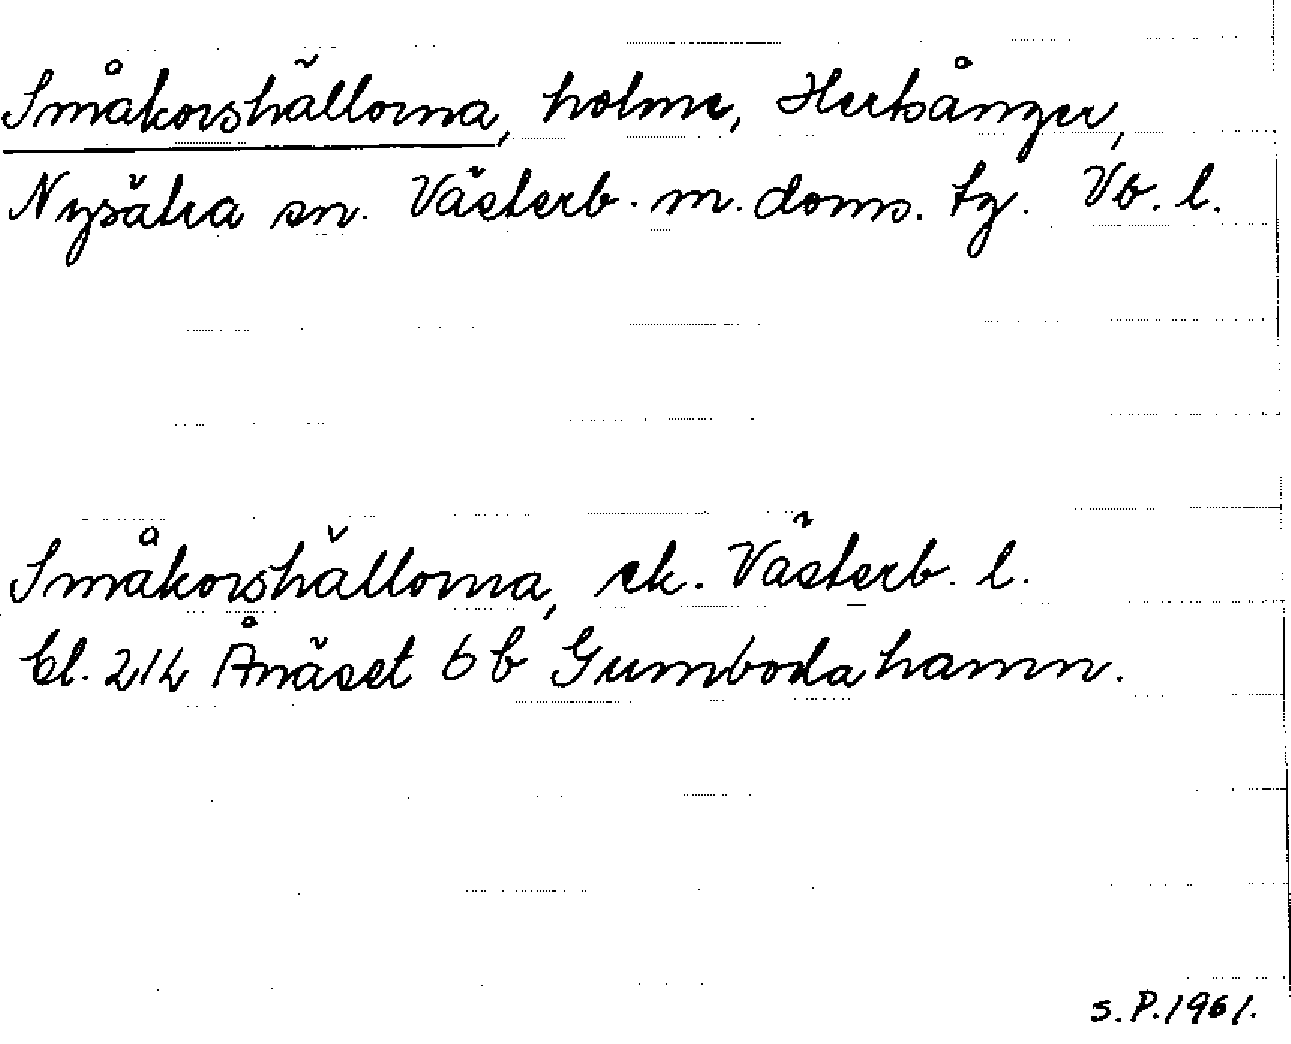 Småkorshällorna, holme, Hertsånger,
Nysätra sn. Västerb. m. doms. tg. Vb. l.
Småkorshällorna, ek. Västerb. l.
bl. 214 Ånäset 6 b Gumboda hamn.
S.P.1961.